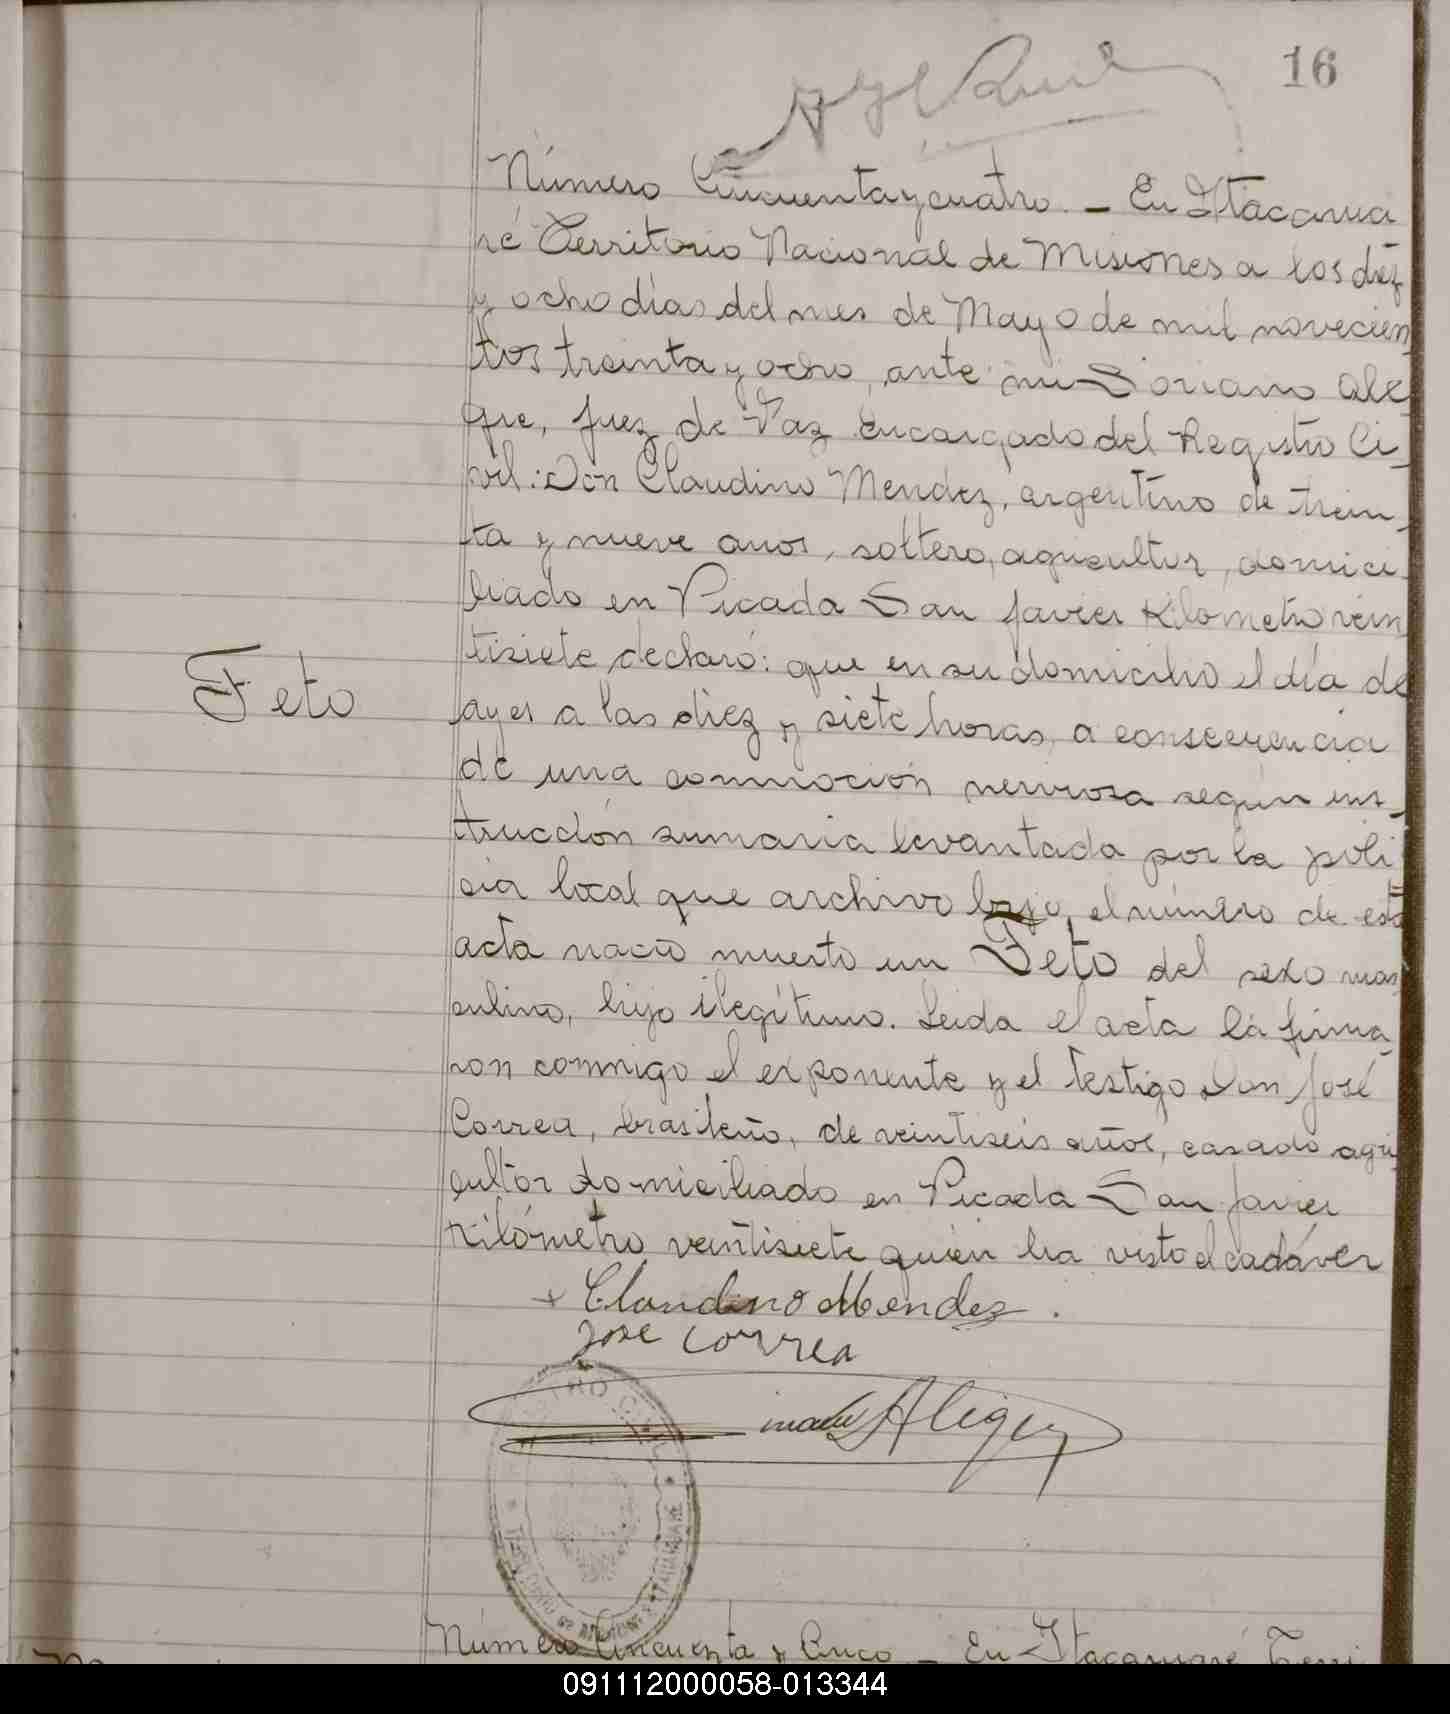 16
Número Cincuenta y cuatro. – En Itacarua
ré Territorio Nacional de Misiones a los diez
y ocho días del mes de Mayo de mil novecien
tos treinta y ocho, ante mi Soriano Ale
gre, Juez de Paz Encargado del Registro Ci
vil: Don Claudino Mendez, argentino de trein
ta y nueve anos, soltero, agricultor, domici
liado en Picada San Javier Kilómetro vein
tisiete declaró: que en su domicilio el día de
Feto
ayer a las diez y siete horas, a consecuencia
de una conmoción nerviosa según ins
trucción sumaria levantada por la poli
cia local que archivo bajo el número de esta
acta nació muerto un Feto del sexo mas
culino, hijo ilegítimo. Leida el acta la firma
ron conmigo el exponente y el testigo Don José
Correa, brasileño, de veintiseis años, casado agri
cultor domiciliado en Picada San Javier
Kilómetro veintisiete quién ha visto el cadáver
Claudino Mendez.
Jose Correa
Número Cincuenta y Cinco – En Itacaruaré Terri
091112000058-013344